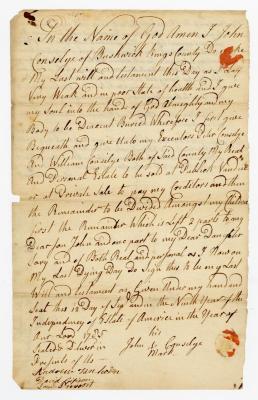 In the Name of God Amen I John
Conselye of Bushwick Kings County Do
My Last will and testament this Day as I Lay
Very Weak and in poor State of health and I give
my Soul into the hands of God Almighty and my
Body to be Decent Buried Wherefore I first give
Bequeath and give Unto my Executors Conselye
And William Conselye Both of Said County My Real
And Personal Estate to be sold at Publick
or at Private Sale to pay my Creditors and then
the Remainder to be Devided Amongst my Children
first the Remainder Which is Left 2 parts to my
Dear Son John and one part to my Dear Daughter
and of Both Real and personal as I Now on
My Last Dying Day Do Sign this to be my Last
Will and testament as Given Under my hand and
Seal this 12 Day of and in the Ninth Year of the
Independency of Estate of America in the Year of
Our Lord 1785
Sealed Deliver in
Presents of the
his
John Conselye
Mark